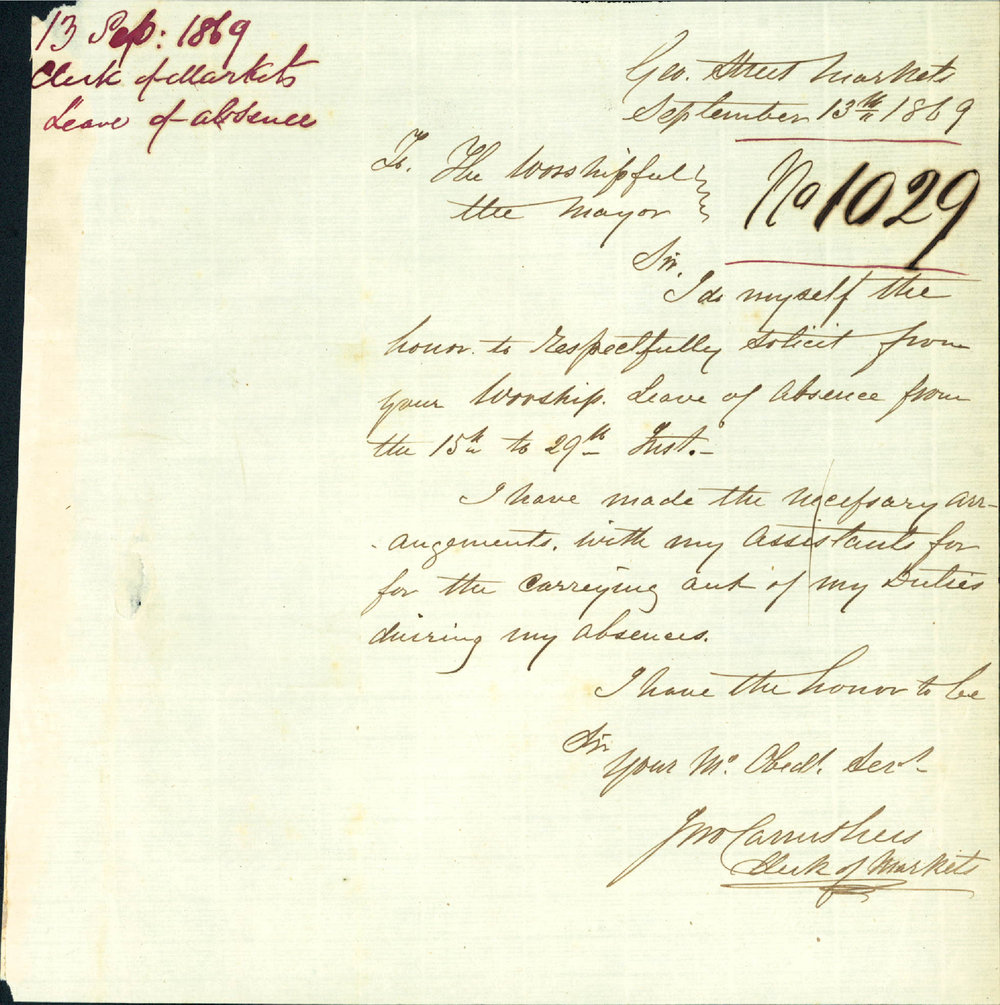 13 Sep: 1869
Clerk of Markets
Leave of absence
Geo. Street Markets
September 13th 1869
To. The Worshipful
the Mayor
No 1029
Sir.
I do myself the
honor to Respectfully Solicit from
your Worship. Leave of Absence from
the 15th to 29th Inst.-
I have made the necessary arr-
-angements. with my Assistants for
for the Carreying out of my Duties
during my absences.
I have the honor to be
Sir
Your Mo. Obedt. Servt
Jno Carruthers
Clerk of Markets